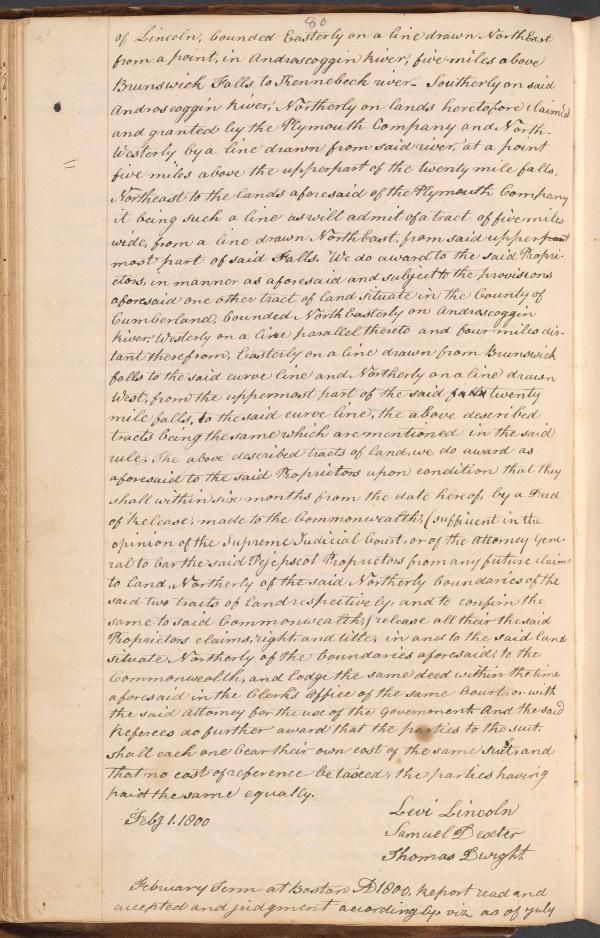 80
of Lincoln, bounded Easterly on a line drawn NorthEast
from a point, in Androscoggin River, five miles above
Brunswick Falls to Kennebeck river – Southerly on said
Androscoggin River, Northerly on lands heretofore claim'd
and granted by the Plymouth Company and North-
Westerly by a line drawn from said river, at a point
five miles above the upper part of the twenty mile falls,
Northeast to the lands aforesaid of the Plymouth Company
it being such a line as will admit of a tract of five miles
wide, from a line drawn North East, from said upper
most part of said Falls. We do award to the said Propri-
etors, in manner as aforesaid and subject to the provisions
aforesaid one other tract of land situate in the County of
Cumberland, bounded NorthEasterly on Androscoggin
River, Westerly on a line parallel thereto and four miles dis-
tant therefrom, Easterly on a line drawn from Brunswick
falls to the said curve line and Northerly on a line drawn
West, from the uppermost part of the said falls twenty
mile falls, to the said curve line, the above described
tracts being the same which are mentioned in the said
rule. The above described tracts of land, we do award as
aforesaid to the said Proprietors upon condition that they
shall within six months from the date hereof, by a Deed
of Release, made to the Commonwealth, (suffiuent in the
opinion of the Supreme Judicial Court, or of the Attorney Gene-
ral to bar the said Pejepscot Proprietors from any future claims
to land, Northerly of the said Northerly boundaries of the
said two tracts of land respectively, and to confirm the
same to said Commonwealth,) release all their the said
Proprietors claims, right, and title, in and to the said land
situate Northerly of the boundaries aforesaid, to the
Commonwealth, and lodge the same deed within the time
aforesaid in the Clerk's Office of the same Court, or with
the said Attorney for the use of the Government. And the said
Referees do further award that the parties to the suit
shall each one bear their own cost of the same suit, and
that no cost of reference be taxed, the parties having
paid the same equally.
Feby 1. 1800
Levi Lincoln
Samuel Dexter
Thomas Dwight.
February Term at Boston AD 1800. Report read and
accepted and judgment accordingly viz as of July